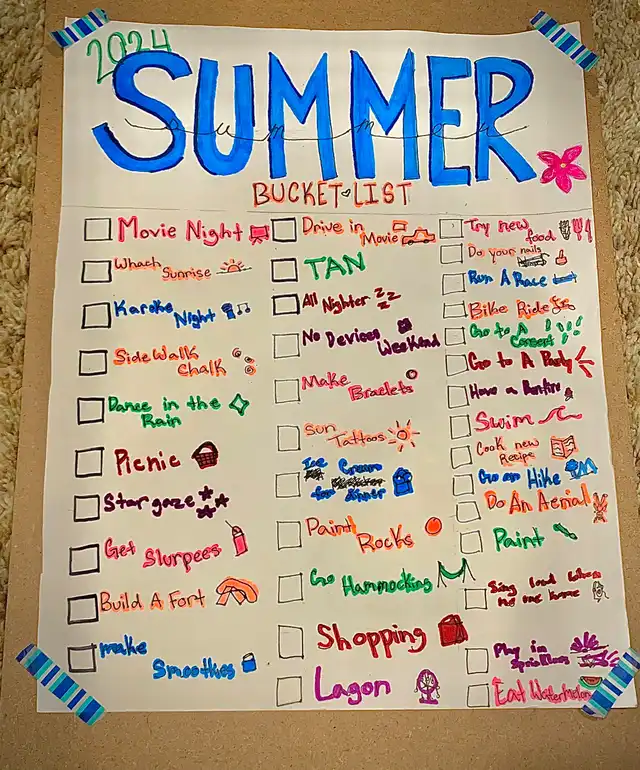 2024
SUMMER
summer
BUCKET LIST
Movie Night
Whach
Sunrise
Karoke
Night
SideWalk
Chalk
Dance in the
Rain
Picnic
Stargaze
Get Slurpees
Build A Fort
make
Smoothies
Drive in
Movie
TAN
All Nighter
No Devices
Weekend
Make
Braclets
Sun
Tattoos
Ice Cream
for dinner
Paint
Rocks
Go Hammocking
Shopping
Lagon
Try new
food
Do your nails
Run A Race
Bike Ride
Go to A
Consert
Go to A Party
Have a Bonfire
Swim
Cook new
Recipe
Go on Hike
Do An Aerial
Paint
Sing loud when
no one home
Play in
Sprinklers
Eat Watermelon